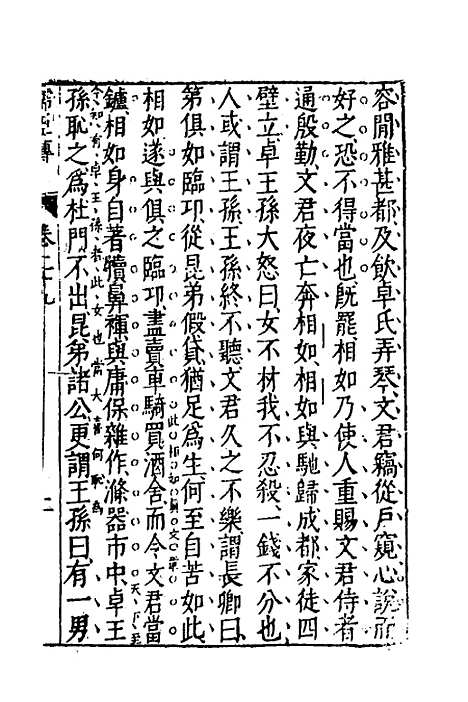 容閒雅甚都及飲卓氏弄琴文君竊從戶窺心說而
好之恐不得當也旣罷相如乃使人重賜文君侍者
通殷勤文君夜亡奔相如相如與馳歸成都家徒四
壁立卓王孫大怒曰女不材我不忍殺一錢不分也
人或謂王孫王孫終不聽文君久之不樂謂長卿曰
第俱如臨卭從昆弟假貸猶足爲生何至自苦如此
相如遂與俱之臨卭盡賣車騎買酒舍而令文君當
鑪相如身自著犢鼻褌與庸保雜作滌器市中卓王
孫恥之爲杜門不出昆弟諸公更謂王孫曰有一男
卷
二